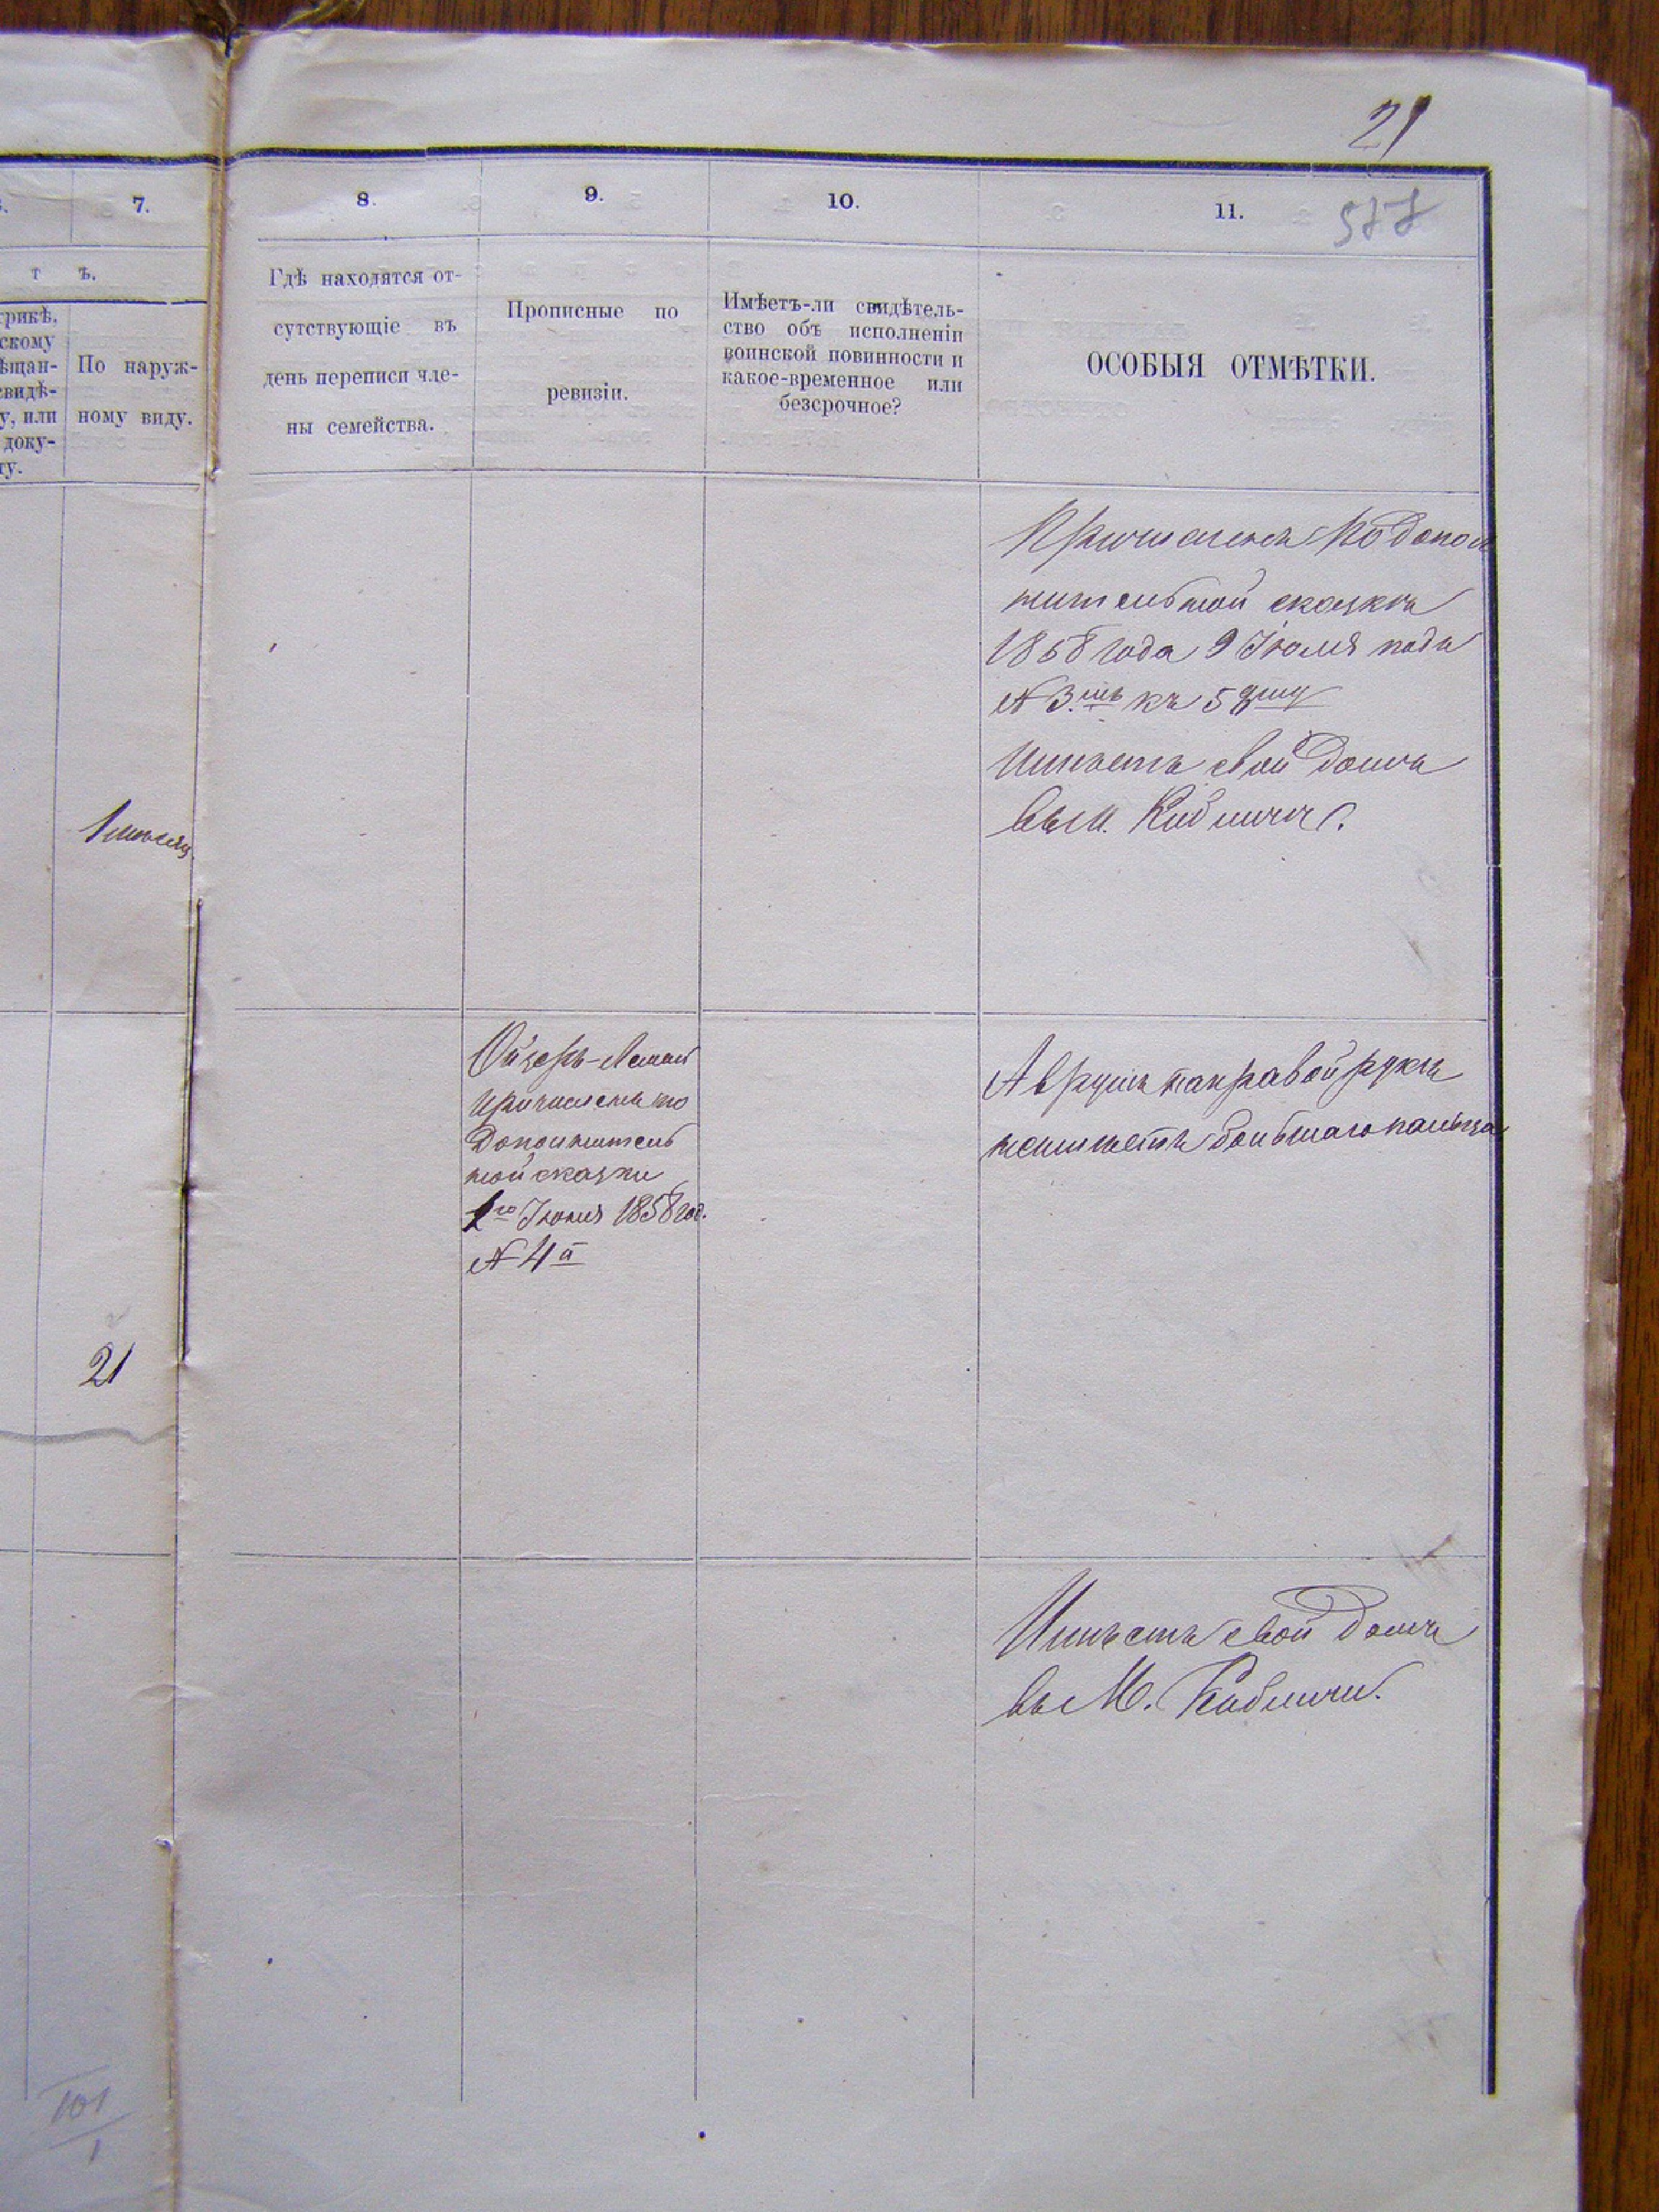 21
577
7.
8.
9.
10.
11.
т ъ.
трикѣ,
скому
ѣщан-
свидѣ-
у, или
доку-
ту.
По наруж-
ному виду.
Гдѣ находятся от-
сутствующіе въ
день переписи чле-
ны семейства.
Прописные по
ревизіи.
Имѣетъ-ли свидѣтель-
ство объ исполненіи
воинской повинности и
какое-временное или
безсрочное?
ОСОБЫЯ ОТМѢТКИ.
1 мѣсяц
Причисленъ по допол
нительной сказкѣ
1858 года 9 Іюля подъ
№ 3.мъ къ 5
Имѣетъ свой домъ
въ м. Кубличи.
Лейзеръ-
причисленъ по
дополнитель
ной сказки
1го Іюня 1858 год.
№ 4й
А на правой руки
неимѣетъ большаго пальца
21
Имѣетъ свой домъ
въ М. Кубличи.
101
1